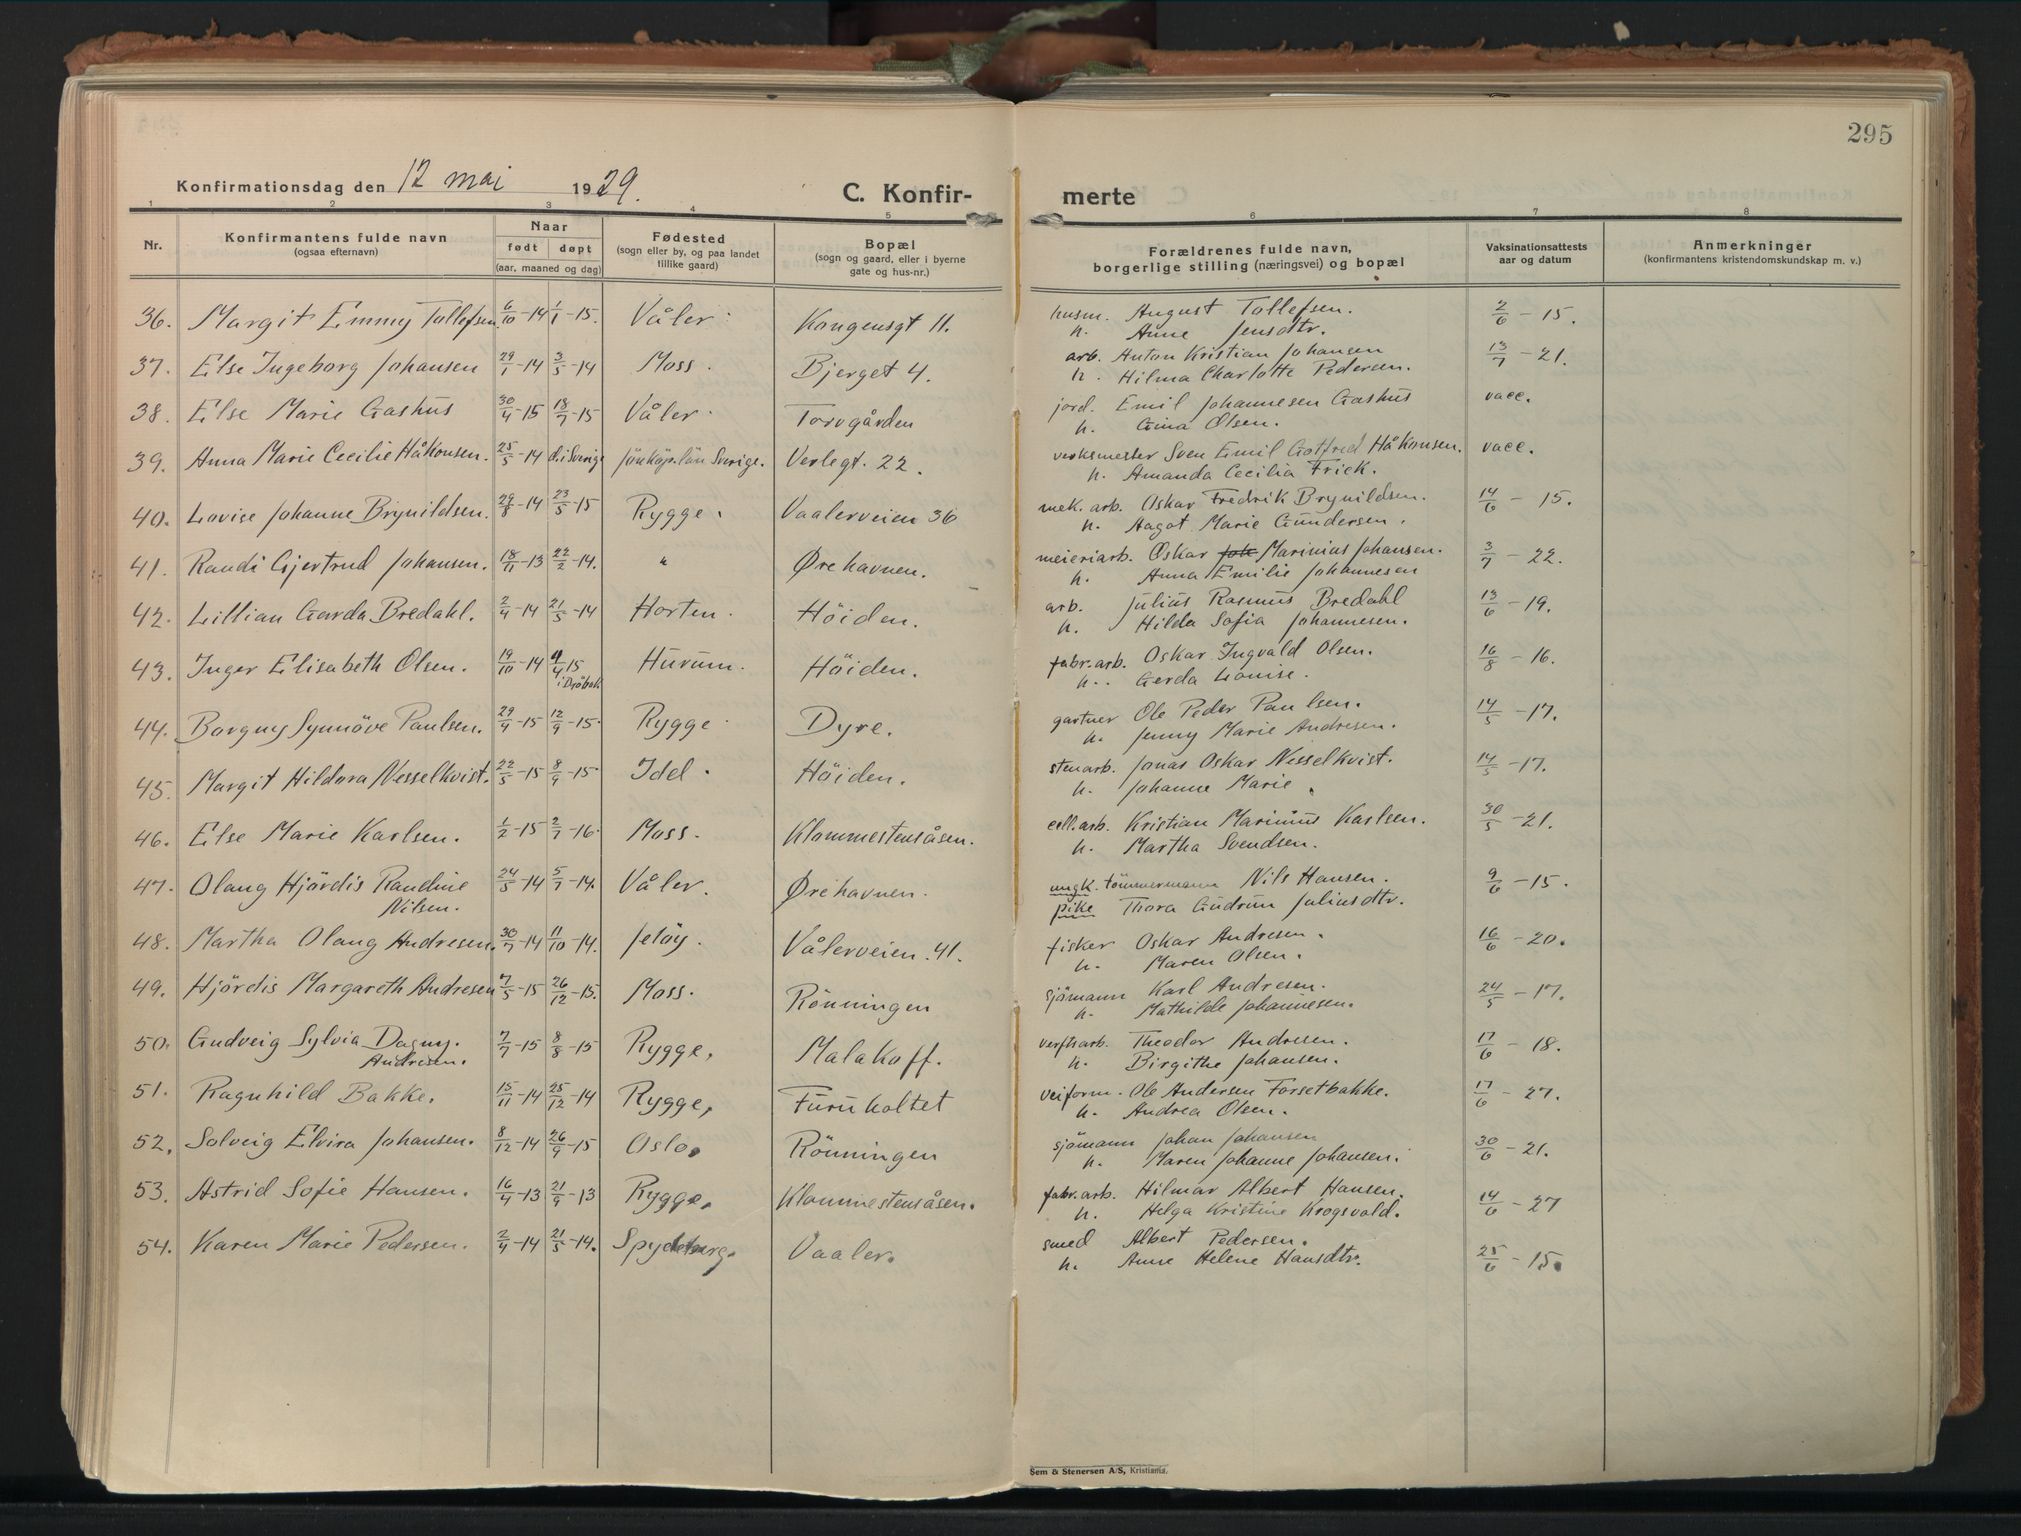 295
Konfirmationsdag den 12 mai 1929.
C. Konfirmerte
1 2 3 4 5 6 7 8
Nr.
Konfirmantens fulde navn
(ogsaa efternavn)
Naar
født døpt
(aar, maaned og dag)
Fødested
(sogn eller by, og paa landet
tillike gaard)
Bopæl
(sogn og gaard, eller i byerne
gate og hus-nr.)
Forældrenes fulde navn,
borgerlige stilling (næringsvei) og bopæl
Vaksinationsattests
aar og datum
Anmerkninger
(konfirmantens kristendomskundskap m. v.)
36. Margit Emmy Tollefsen. 6/10-14 1/1-15. Våler. Kongensgt 11. husm. August Tollefsen. 2/6-15.
h. Anne Jensdtr.
37. Else Ingeborg Johansen 29/1-14 3/5-14 Moss. Bjerget 4. arb. Anton Kristian Johansen 13/7-21.
h. Hilma Charlotte Pedersen.
38. Else Marie Gashus 30/4-15 18/7-15 Våler. Torvgården jord. Emil Johannesen Gashus vacc.
h. Gina Olsen.
39. Anna Marie Cecilie Håkonsen. 25/5-14 d. i Sverige Jönköp. län Sverige. Verlegt. 22. verksmester Sven Emil Gotfred Håkonsen. vacc.
h. Amanda Cecilia Frick.
40. Lovise Johanne Brynildsen. 29/8-14 23/5-15 Rygge. Vaalerveien 36 mek. arb. Oskar Fredrik Brynildsen. 14/6-15.
h. Aagot Marie Gundersen.
41. Randi Gjertrud Johansen. 18/11-13 22/2-14. " Ørehavnen. meieriarb. Oskar Joh Marinius Johansen. 3/7-22.
h. Anna Emilie Johannesen
42. Lillian Gerda Bredahl. 2/4-14 21/5-14 Horten. Höiden. arb. Julius Rasmus Bredahl 13/6-19.
h. Hilda Sofia Johannesen.
43. Inger Elisabeth Olsen. 19/10-14 4/4 15 Hurum. Höiden. fabr. arb. Oskar Ingvald Olsen. 16/8-16.
i Dröbak h. Gerda Louise.
44. Borguy Synnöve Paulsen. 29/4-15 12/9-15. Rygge Dyre. gartner Ole Peder Paulsen. 14/5-17.
h. Jenny Marie Andresen.
45. Margit Hildora Nesselkvist. 22/5-15 8/9-15. Idd. Höiden. stenarb. Jonas Oskar Nesselkvist. 14/5-17.
h. Johanne Marie.
46. Else Marie Karlsen. 1/2-15 2/7-16. Moss. Klommestensåsen. cell. arb. Kristian Marinius Karlsen. 30/5-21.
h. Martha Svendsen.
47. Olaug Hjördis Randine 24/5-14 5/7-14. Våler. Ørehavnen. ungk. tömmermann Nils Hansen. 9/6-15.
Nilsen. pike Thora Gudrun Juliusdtr.
48. Martha Olaug Andresen. 30/7-14 11/10-14. Jelöy. Vålerveien. 41. fisker Oskar Andresen. 16/6-20.
h. Maren Olsen.
49. Hjördis Margareth Andresen 7/5-15 26/12-15. Moss. Rönningen sjömann Karl Andresen. 24/5-17.
h. Mathilde Johannesen.
50. Gudveig Sylvia Dagny. 7/7-15 8/8-15 Rygge. Malakoff. verftsarb. Theodor Andresen. 17/6-18.
Andresen. h. Birgithe Johansen.
51. Ragnhild Bakke. 15/11-14 25/12-14 Rygge, Furuholtet veiform. Ole Andersen Forsetbakke. 17/6-27.
h. Andrea Olsen.
52. Solveig Elvira Johansen. 8/12-14 26/9-15 Oslo. Rönningen sjömann Johan Johansen 30/6-21.
h. Maren Johanne Johansen.
53. Astrid Sofie Hansen. 16/4-13 21/9-13 Rygge. Klommestensåsen. fabr. arb. Hilmar Albert Hansen. 14/6-27
h. Helga Kristine Krogsvold.
54. Karen Marie Pedersen. 2/4-14 21/5-14. Spydeberg. Vaaler. smed Albert Pedersen. 25/6-15.
h. Anne Helene Hansdtr.
Sem & Stenersen A/S, Kristiania.